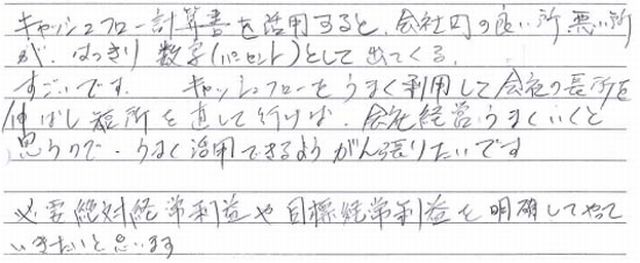 キャッシュフロー計算書を活用すると、会社内の良い所悪い所
が、はっきり数字(パーセント)として出てくる。
すごいです。キャッシュフローをうまく利用して会社の長所を
伸ばし短所を直して行けば、会社経営うまくいくと
思うので、うまく活用できるようがん張りたいです
必要絶対経常利益や目標経常利益を明確してやって
いきたいと思います